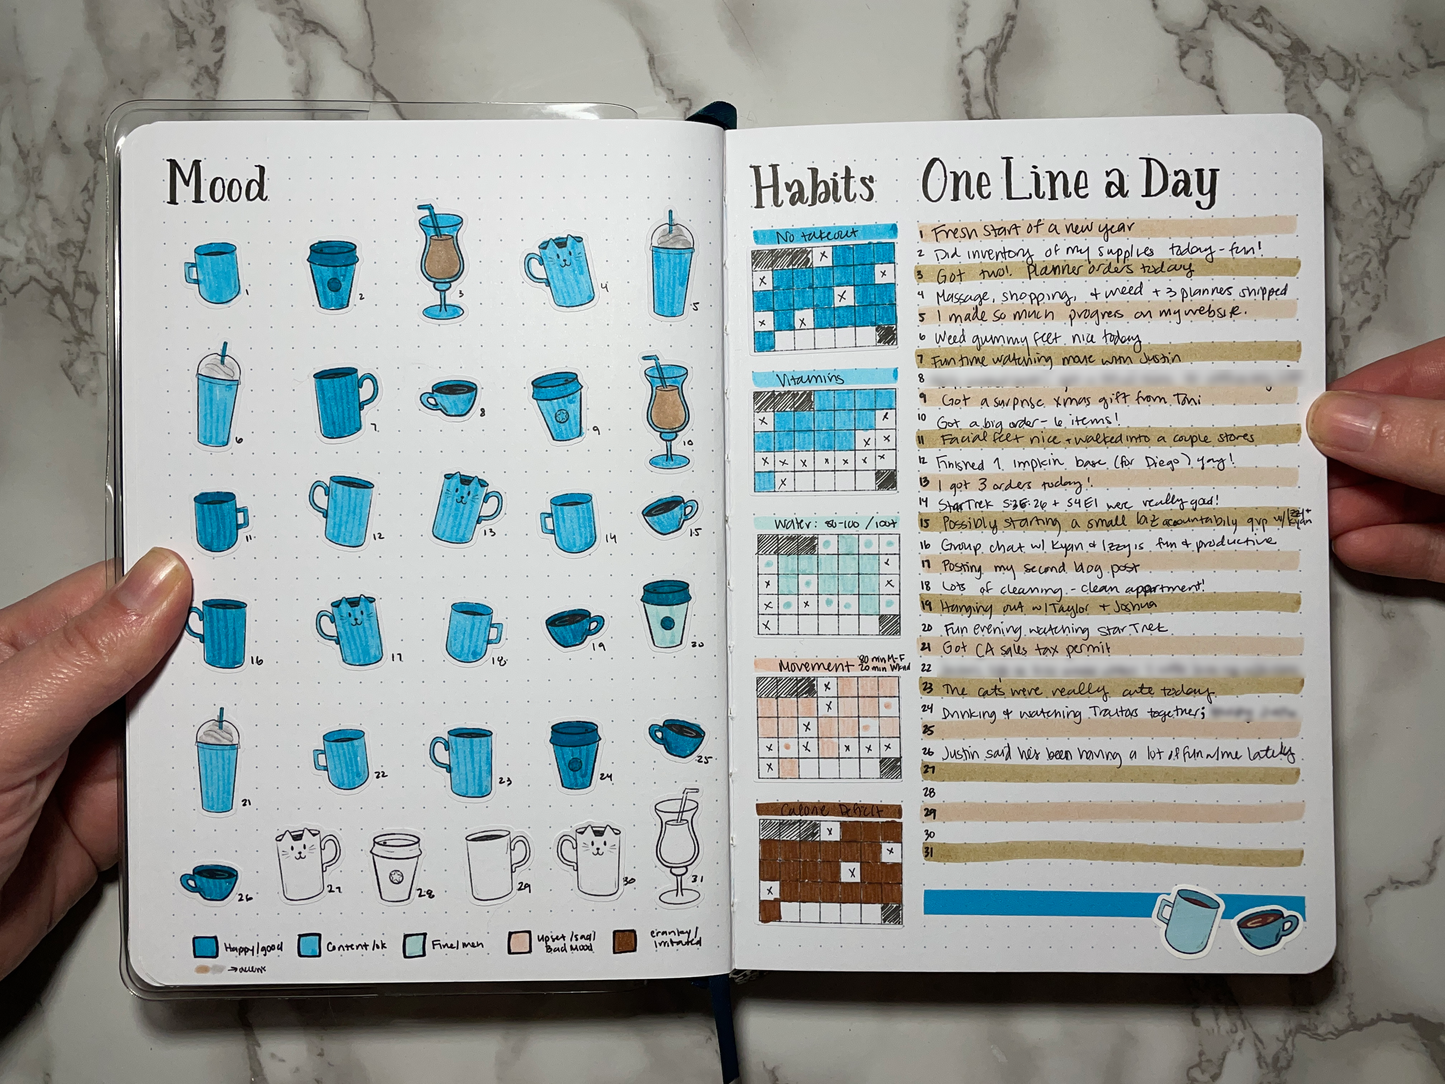 Mood
1
2
3
4
5
6
7
8
9
10
11
12
13
14
15
16
17
18
19
20
21
22
23
24
25
26
27
28
29
30
31
Happy/good
Content/ok
Fine/meh
Upset/sad/
Bad Mood
cranky/
Irritated
Habits
No takeout
Vitamins
Water: 80-100 /100+
Movement 30 min M-F
20 min Wknd
Calorie Deficit
One Line a Day
1 Fresh start of a new year
2 Did inventory of my supplies today - fun!
3 Got two! planner orders today
4 Massage, shopping, + weed + 3 planners shipped
5 I made so much progress on my website.
6 Weed gummy felt nice today
7 Fun time watching move with Justin
8
9 Got a surprise xmas gift from Toni
10 Got a big order - 6 items!
11 Facial felt nice + walked into a couple stores
12 Finished 1 impkin base (for Diego) yay!
13 I got 3 orders today!
14 Star Trek S3E26 + S4E1 were really good!
15 Possibly starting a small biz accountabily grp w/ Izzy + Kyan
16 Group chat w/ Kyan & Izzy is fun & productive
17 Posting my second blog post
18 Lots of cleaning - clean apartment!
19 Hanging out w/ Taylor + Joshua
20 Fun evening watching Star Trek
21 Got CA sales tax permit
22
23 The cats were really cute today
24 Drinking & watching Traitors together;
25
26 Justin said he's been having a lot of fun w/me lately
27
28
29
30
31